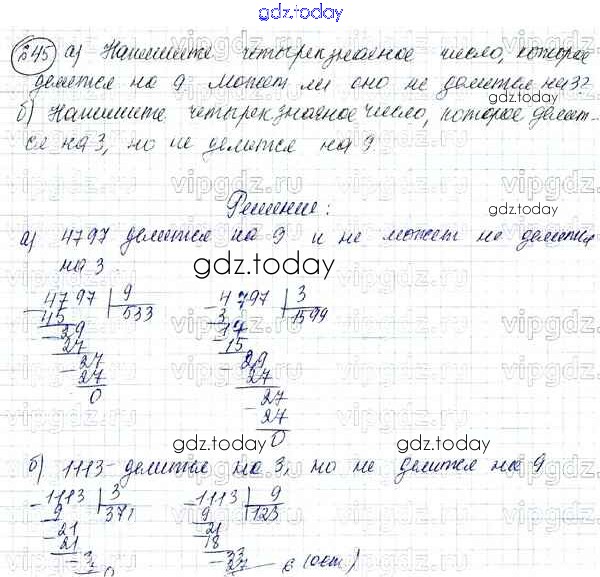 gdz.today
245 а) Напишите четырехзначное число, которое
делится на 9. Может ли оно не делится на 3?
gdz.today
б) Напишите четырехзначное число, которое делит-
ся на 3, но не делится на 9
vipgdz.ru vipgdz.ru
Решение:
gdz.today
а) 4797 делится на 9 и не может не делится
на 3.
gdz.today
4797 9 4797 3
45 533 3 1599
29 17
27 15
27 29
27 27
0 27
27
0
gdz.today gdz.today
б) 1113 - делится на 3, но не делится на 9
1113 3 1113 9
9 371 9 123
21 21
21 18
3 33
27 6 (ост)
0
gdz.today